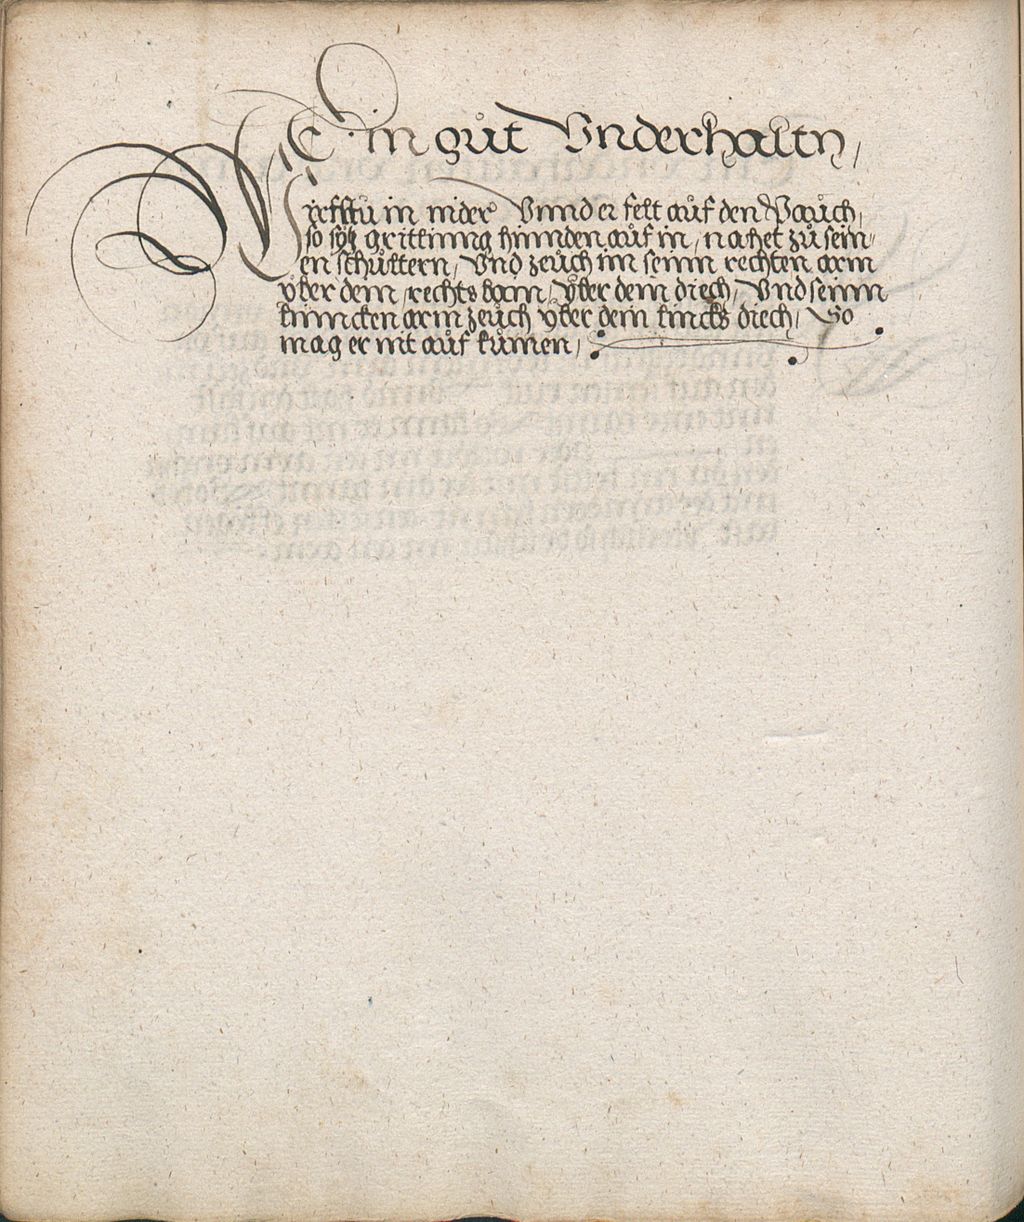 Ein gůt Vnderhaltn /
Wirffstu in nider Vnnd er felt aůf den Paůch /
so sytz grittling hinnden aůf in / nahet zů sein
en schůltern / Vnd zeůch im seinn rechten arm
vber dein rechts Vber dein diech / Vnd seinn
linncken arm zeůch vber dein lincks diech / So
mag er nit aůf kůmen /